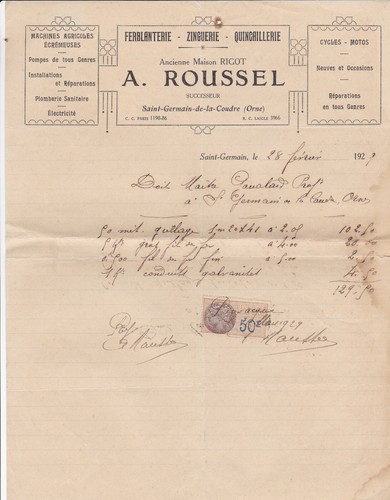 MACHINES AGRICOLES
ÉCRÉMEUSES
Pompes de tous Genres
Installations
et Réparations
Plomberie Sanitaire
Électricité
FERBLANTERIE - ZINGUERIE - QUINCAILLERIE
Ancienne Maison RIGOT
A. ROUSSEL
SUCCESSEUR
Saint-Germain-de-la-Coudre (Orne)
C. C. PARIS 1190-86
R. C. LAIGLE 3966
CYCLES - MOTOS
Neuves et Occasions
Réparations
en tous Genres
Saint-Germain, le 28 février 1929
Doit
à St Germain de la Coudre Orne
50 mèt. grillage à 2.05 102.50
fil de fer à 4.00 20
fil de fer fin à 5.00 2.50
conduite galvanisée 4.50
129.50
50c